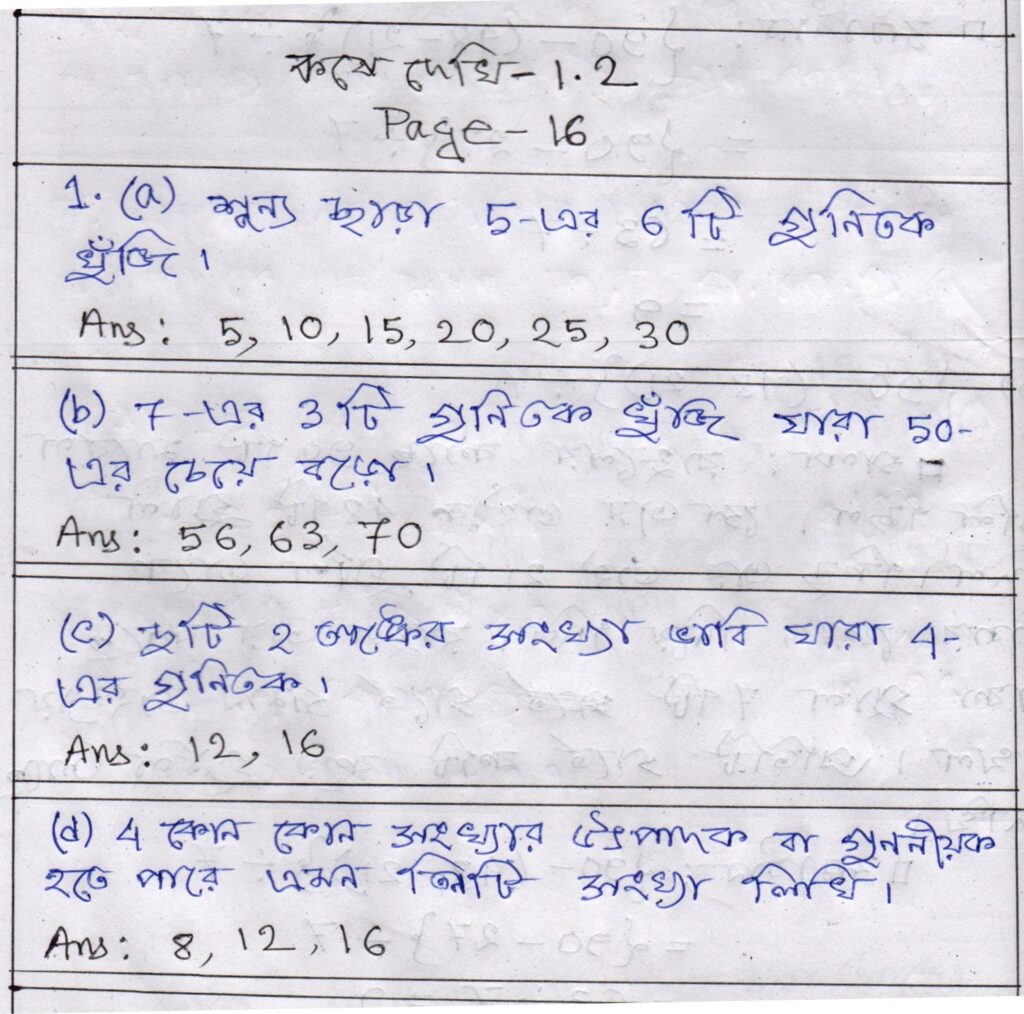 কষে দেখি - 1.2
Page - 16
1. (a) শূন্য ছাড়া 5-এর 6 টি গুনিতক
খুঁজি।
Ans: 5, 10, 15, 20, 25, 30
(b) 7-এর 3 টি গুনিতক খুঁজি যারা 50-
এর চেয়ে বড়ো।
Ans: 56, 63, 70
(c) দুটি ২ অঙ্কের সংখ্যা ভাবি যারা 4-
এর গুনিতক।
Ans: 12, 16
(d) 4 কোন কোন সংখ্যার উৎপাদক বা গুননীয়ক
হতে পারে এমন তিনটি সংখ্যা লিখি।
Ans: 8, 12, 16